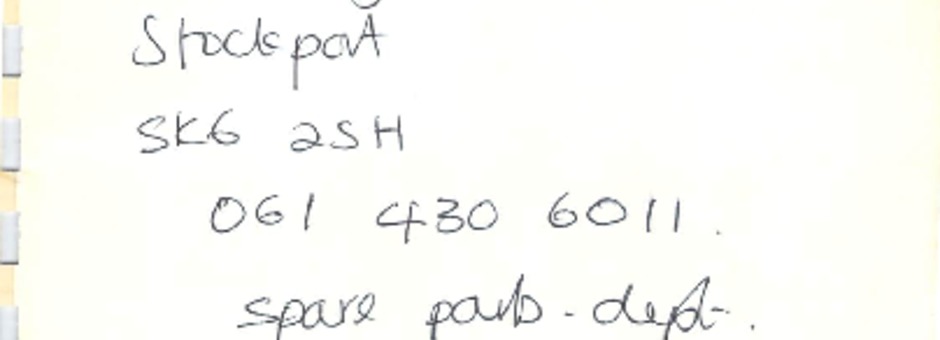 Stockport
SK6 2SH
061 430 6011.
spare parts - dept.